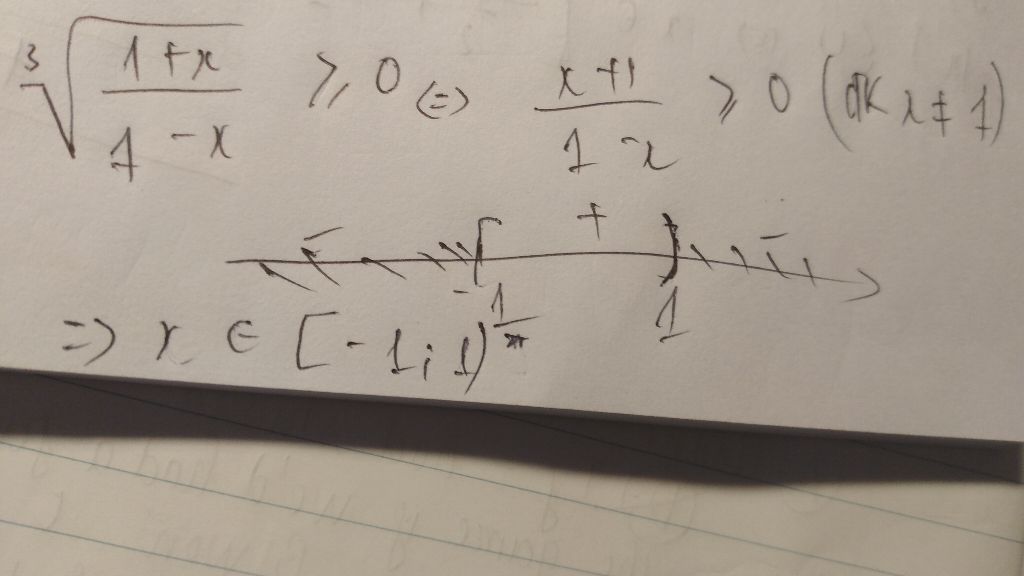 ∛((1+x)/(1-x)) ≥ 0 (=) (x+1)/(1-x) ≥ 0 (đk x ≠ 1)
- [ + ) -
-1 1
=> x ∈ [-1; 1)